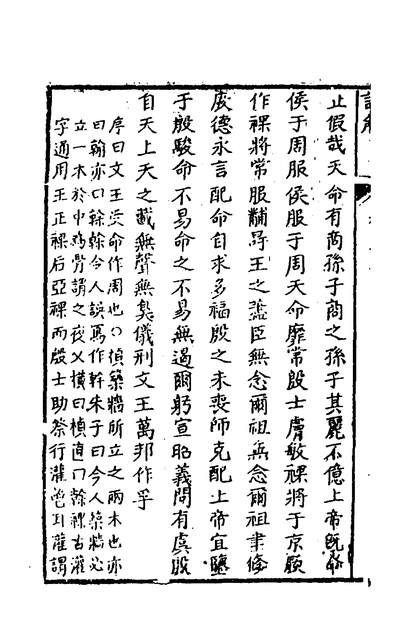 止假哉天命有商孫子商之孫子其麗不億上帝既命
侯于周服侯服于周天命靡常殷士膚敏祼將于京厥
作祼將常服黼冔王之藎臣無念爾祖無念爾祖聿脩
厥德永言配命自求多福殷之未喪師克配上帝宜鑒
于殷駿命不易命之不易無遏爾躬宣昭義問有虞殷
自天上天之載無聲無臭儀刑文王萬邦作孚
序曰文王受命作周也○楨築牆所立之兩木也亦
曰翰亦曰榦榦今人誤寫作幹朱子曰今人築牆必
立一木於中為骨謂之夜叉橫曰楨直曰榦祼古灌
字通用王正祼后亞祼而殷士助祭行灌鬯耳灌謂